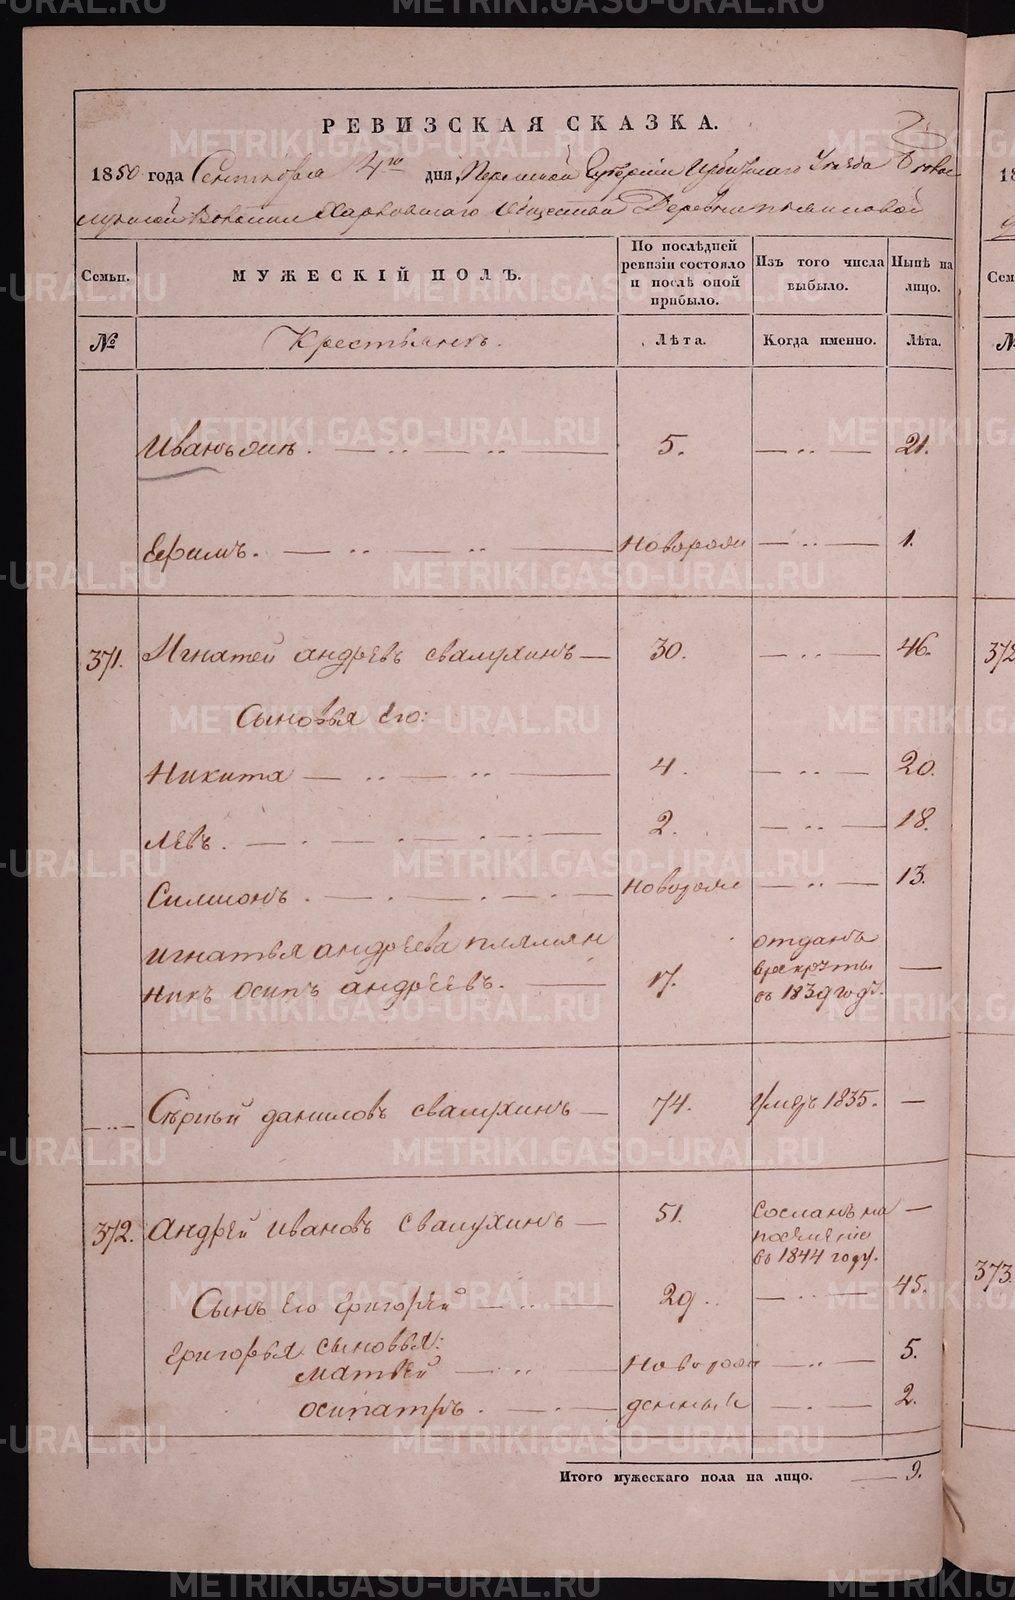 РЕВИЗСКАЯ СКАЗКА.
1850 года Сентября 4го дня Пермской Губернии Ирбитскаго Уезда
Волости Харловскаго Общества Деревни
Семьи.
МУЖЕСКІЙ ПОЛЪ.
По послѣдней ревизіи состояло и послѣ оной прибыло.
Изъ того числа выбыло.
Нынѣ на лицо.
№
Крестьянъ.
Лѣта.
Когда именно.
Лѣта.
5. 21.
Ефимъ. Новорож 1.
371. Игнатей андреевъ свалухинъ 30. 46.
Сыновья Его:
Никита 4. 20.
левъ. 2. 18.
Симионъ. новорож 13.
игнатья андреева племян
никъ осипъ андреевъ. 17. отданъ в рекруты въ 1839 году.
Сергей даниловъ свалухинъ 74. умеръ 1835.
372. андрей ивановъ свалухинъ 51. Сосланъ на поселение въ 1844 году.
Сынъ Его григорей 29. 45.
григорья сыновья:
матвей новорож 5.
осипатръ. денный 2.
Итого мужескаго пола на лицо. 9.
372
373.
METRIKI.GASO-URAL.RU